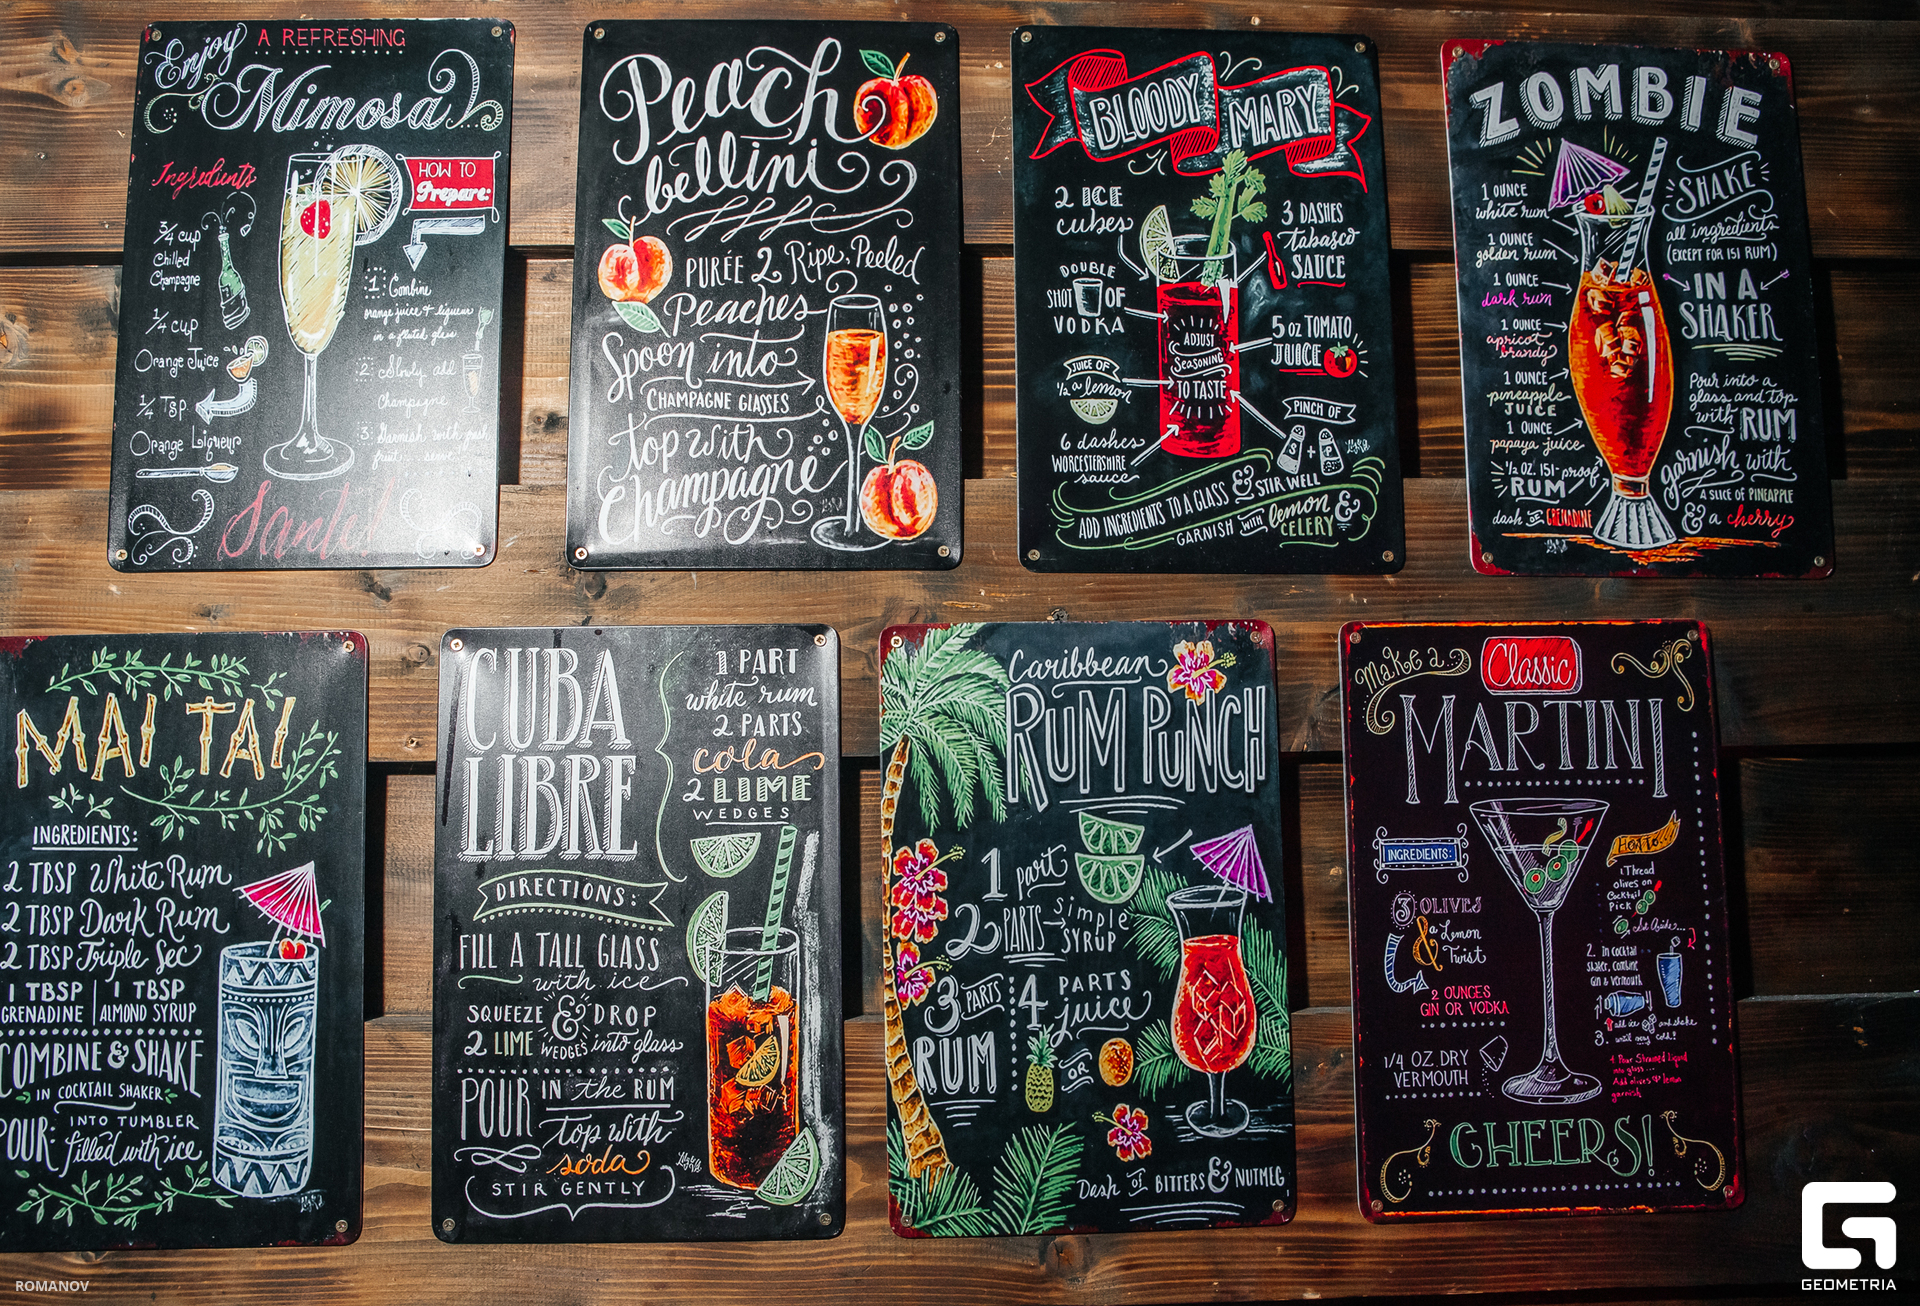 Enjoy A REFRESHING
Mimosa
Ingredients
3/4 cup
Chilled
Champagne
1/4 cup
Orange Juice
1/4 Tsp.
Orange Liqueur
HOW TO
Prepare:
1 Combine
orange juice + liqueur
in a fluted glass
2 Slowly add
Champagne
3 Garnish with
fruit... serve
Peach
bellini
PURÉE 2 Ripe, Peeled
Peaches
Spoon into
CHAMPAGNE GLASSES
top with
Champagne
BLOODY MARY
2 ICE
cubes
DOUBLE
SHOT OF
VODKA
JUICE OF
1/2 a lemon
6 dashes
WORCESTERSHIRE
sauce
3 DASHES
tabasco
SAUCE
5 oz TOMATO
JUICE
PINCH OF
S + P
ADJUST
Seasoning
TO TASTE
ADD INGREDIENTS TO A GLASS & STIR WELL
GARNISH WITH lemon &
CELERY
ZOMBIE
1 OUNCE
white rum
1 OUNCE
golden rum
1 OUNCE
dark rum
1 OUNCE
apricot
brandy
1 OUNCE
pineapple
JUICE
1 OUNCE
papaya juice
1/2 OZ. 151-proof
RUM
dash OF GRENADINE
SHAKE
all ingredients
(EXCEPT FOR 151 RUM)
IN A
SHAKER
Pour into a
glass and top
with RUM
garnish with
A SLICE OF PINEAPPLE
& a cherry
MAI TAI
INGREDIENTS:
2 TBSP White Rum
2 TBSP Dark Rum
2 TBSP Triple Sec
1 TBSP | 1 TBSP
GRENADINE | ALMOND SYRUP
COMBINE & SHAKE
IN COCKTAIL SHAKER
POUR: INTO TUMBLER
filled with ice
CUBA
LIBRE
1 PART
white rum
2 PARTS
cola
2 LIME
WEDGES
DIRECTIONS:
FILL A TALL GLASS
with ice
SQUEEZE & DROP
2 LIME WEDGES into glass
POUR IN the RUM
top with
soda
STIR GENTLY
Caribbean
RUM PUNCH
1 part
2 PARTS simple
SYRUP
3 PARTS
RUM
4 PARTS
juice
OR
Dash OF BITTERS & NUTMEG
Make a Classic
MARTINI
INGREDIENTS:
3 OLIVES
& a Lemon
Twist
2 OUNCES
GIN OR VODKA
1/4 OZ. DRY
VERMOUTH
HOW TO:
1 Thread
olives on
Cocktail
Pick
Set Aside...
2. In cocktail
shaker, combine
Gin & Vermouth
add ice and shake
3. until very cold!
4 Pour Strained Liquid
into glass...
Add olives & lemon
garnish
CHEERS!
ROMANOV
GEOMETRIA